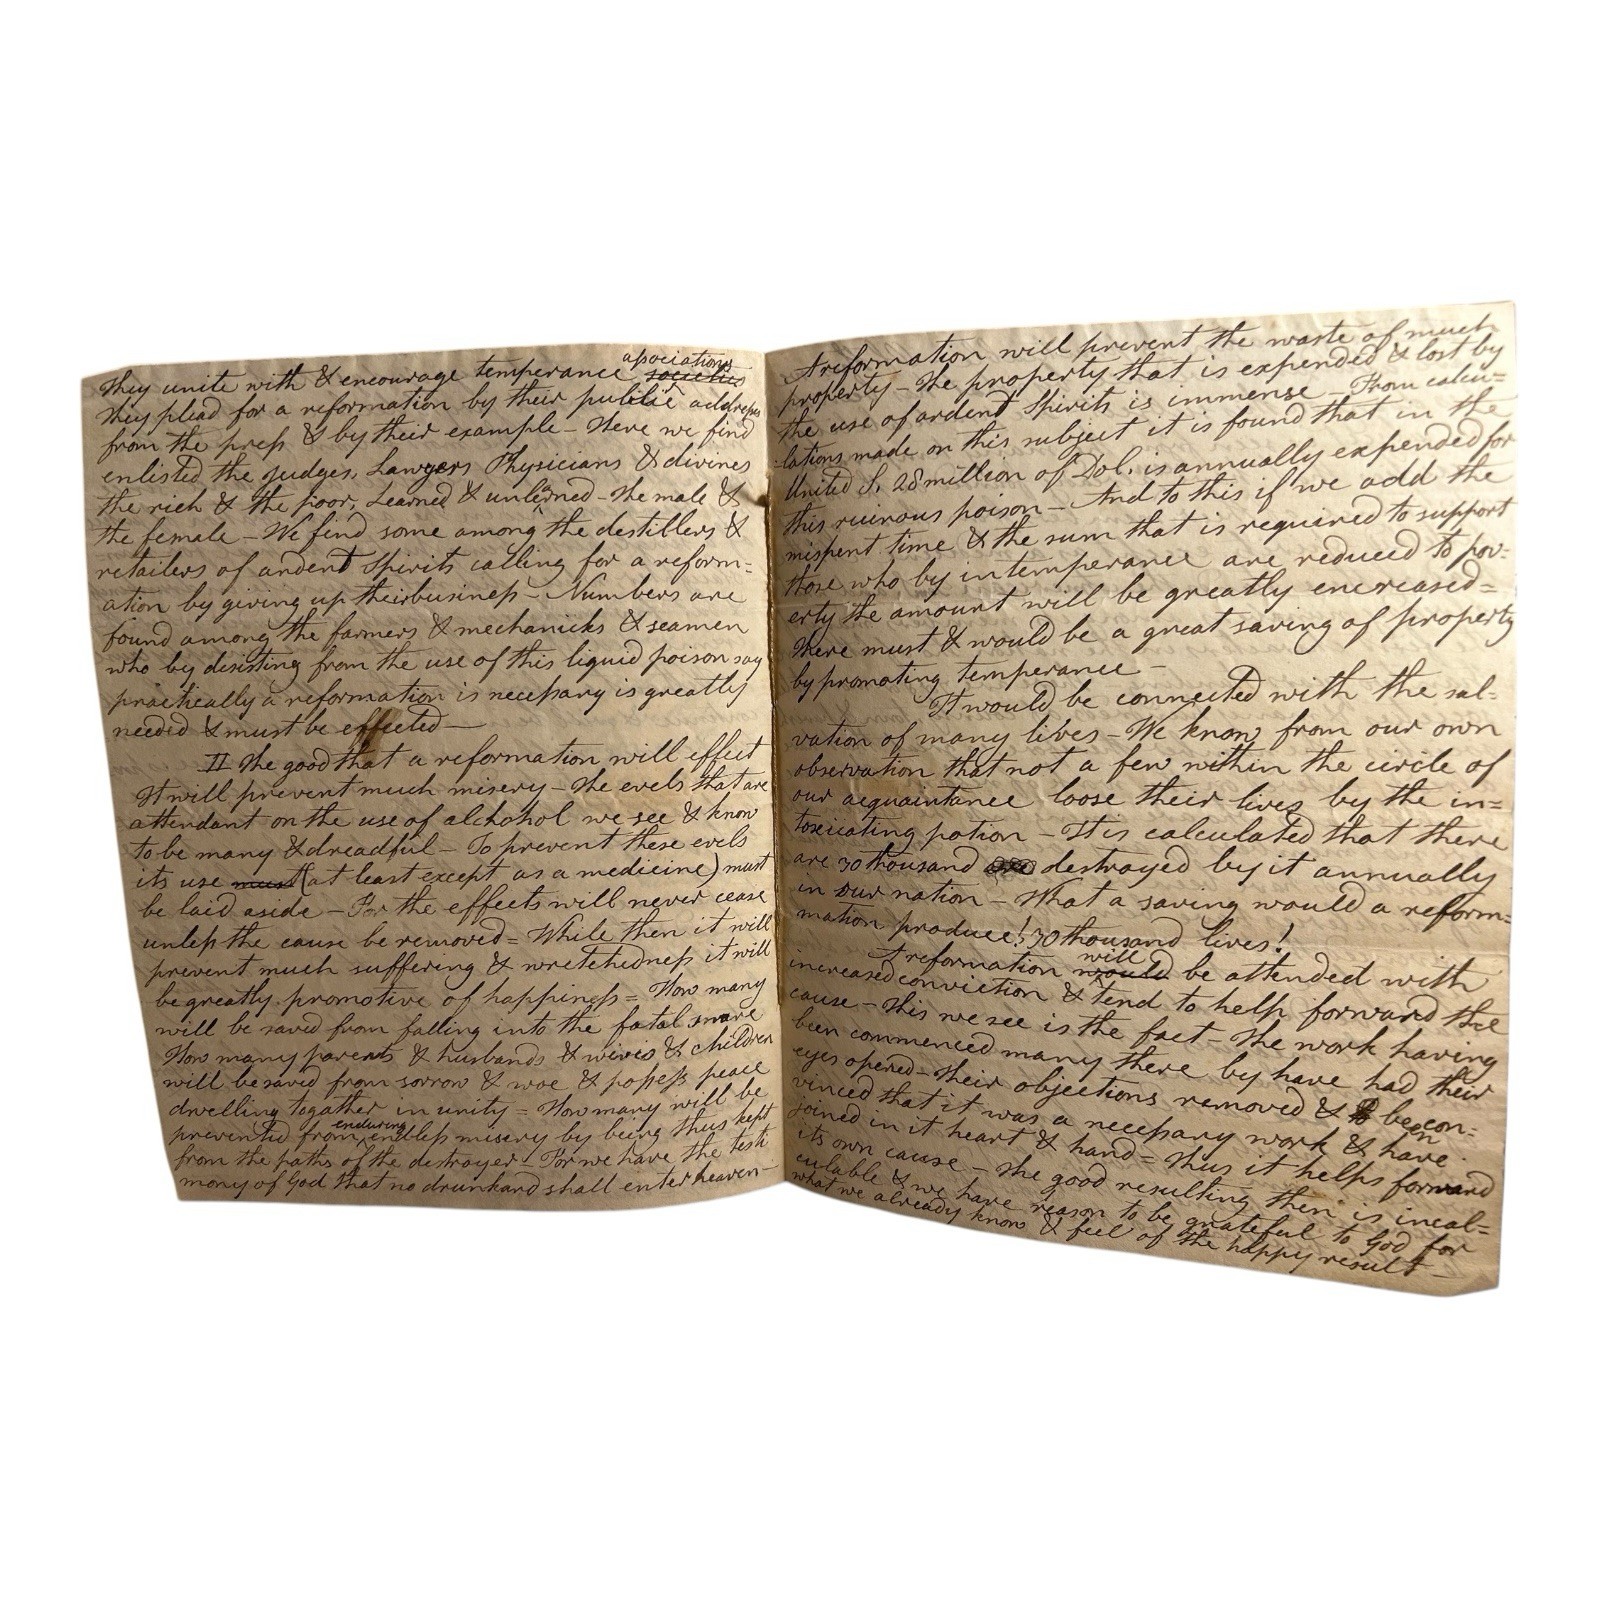 They unite with & encourage temperance associations societies
They plead for a reformation by their public addresses
from the press & by their example – Here we find
enlisted the judges, Lawyers Physicians & divines
the rich & the poor, Learned & unlerned – The male &
the female – We find some among the destillers &
retailers of ardent Spirits calling for a reform=
ation by giving up their business – Numbers are
found among the farmers & mechanicks & seamen
who by desisting from the use of this liquid poison say
practically a reformation is necessary is greatly
needed & must be effected —
II The good that a reformation will effect
It will prevent much misery – The evels that are
attendant on the use of alchohol we see & know
to be many & dreadful – To prevent these evels
its use must (at least except as a medicine) must
be laid aside – For the effects will never cease
unless the cause be removed = While then it will
prevent much suffering & wretchedness it will
be greatly promotive of happiness = How many
will be saved from falling into the fatal snare
How many parents & husbands & wives & children
will be saved from sorrow & woe & possess peace
dwelling togather in unity = How many will be
prevented from enduring endless misery by being thus kept
from the paths of the destroyer – For we have the testi
mony of God that no drunkard shall enter heaven –
A reformation will prevent the waste of much
property – The property that is expended & lost by
the use of ardent Spirits is immense – From calcu=
lations made on this subject it is found that in the
United S. 28 million of Dol. is annually expended for
this ruinous poison – And to this if we add the
mispent time & the sum that is required to support
those who by intemperance are reduced to pov=
erty the amount will be greatly encreased =
There must & would be a great saving of property
by promoting temperance –
It would be connected with the sal-
vation of many lives – We know from our own
observation that not a few within the circle of
our acquaintance loose their lives by the in=
toxicating potion – It is calculated that there
are 30 thousand destroyed by it annually
in our nation – What a saving would a refor=
mation produce! 30 thousand lives!
A reformation will would be attended with
increased conviction & tend to help forward the
cause – This we see is the fact – The work having
been commenced many there by have had their
eyes opened – Their objections removed & be con=
vinced that it was a necessary work & have
joined in it heart & hand = Thus it helps forward
its own cause – The good resulting then is incal=
culable & we have reason to be grateful to God for
what we already know & feel of the happy result –